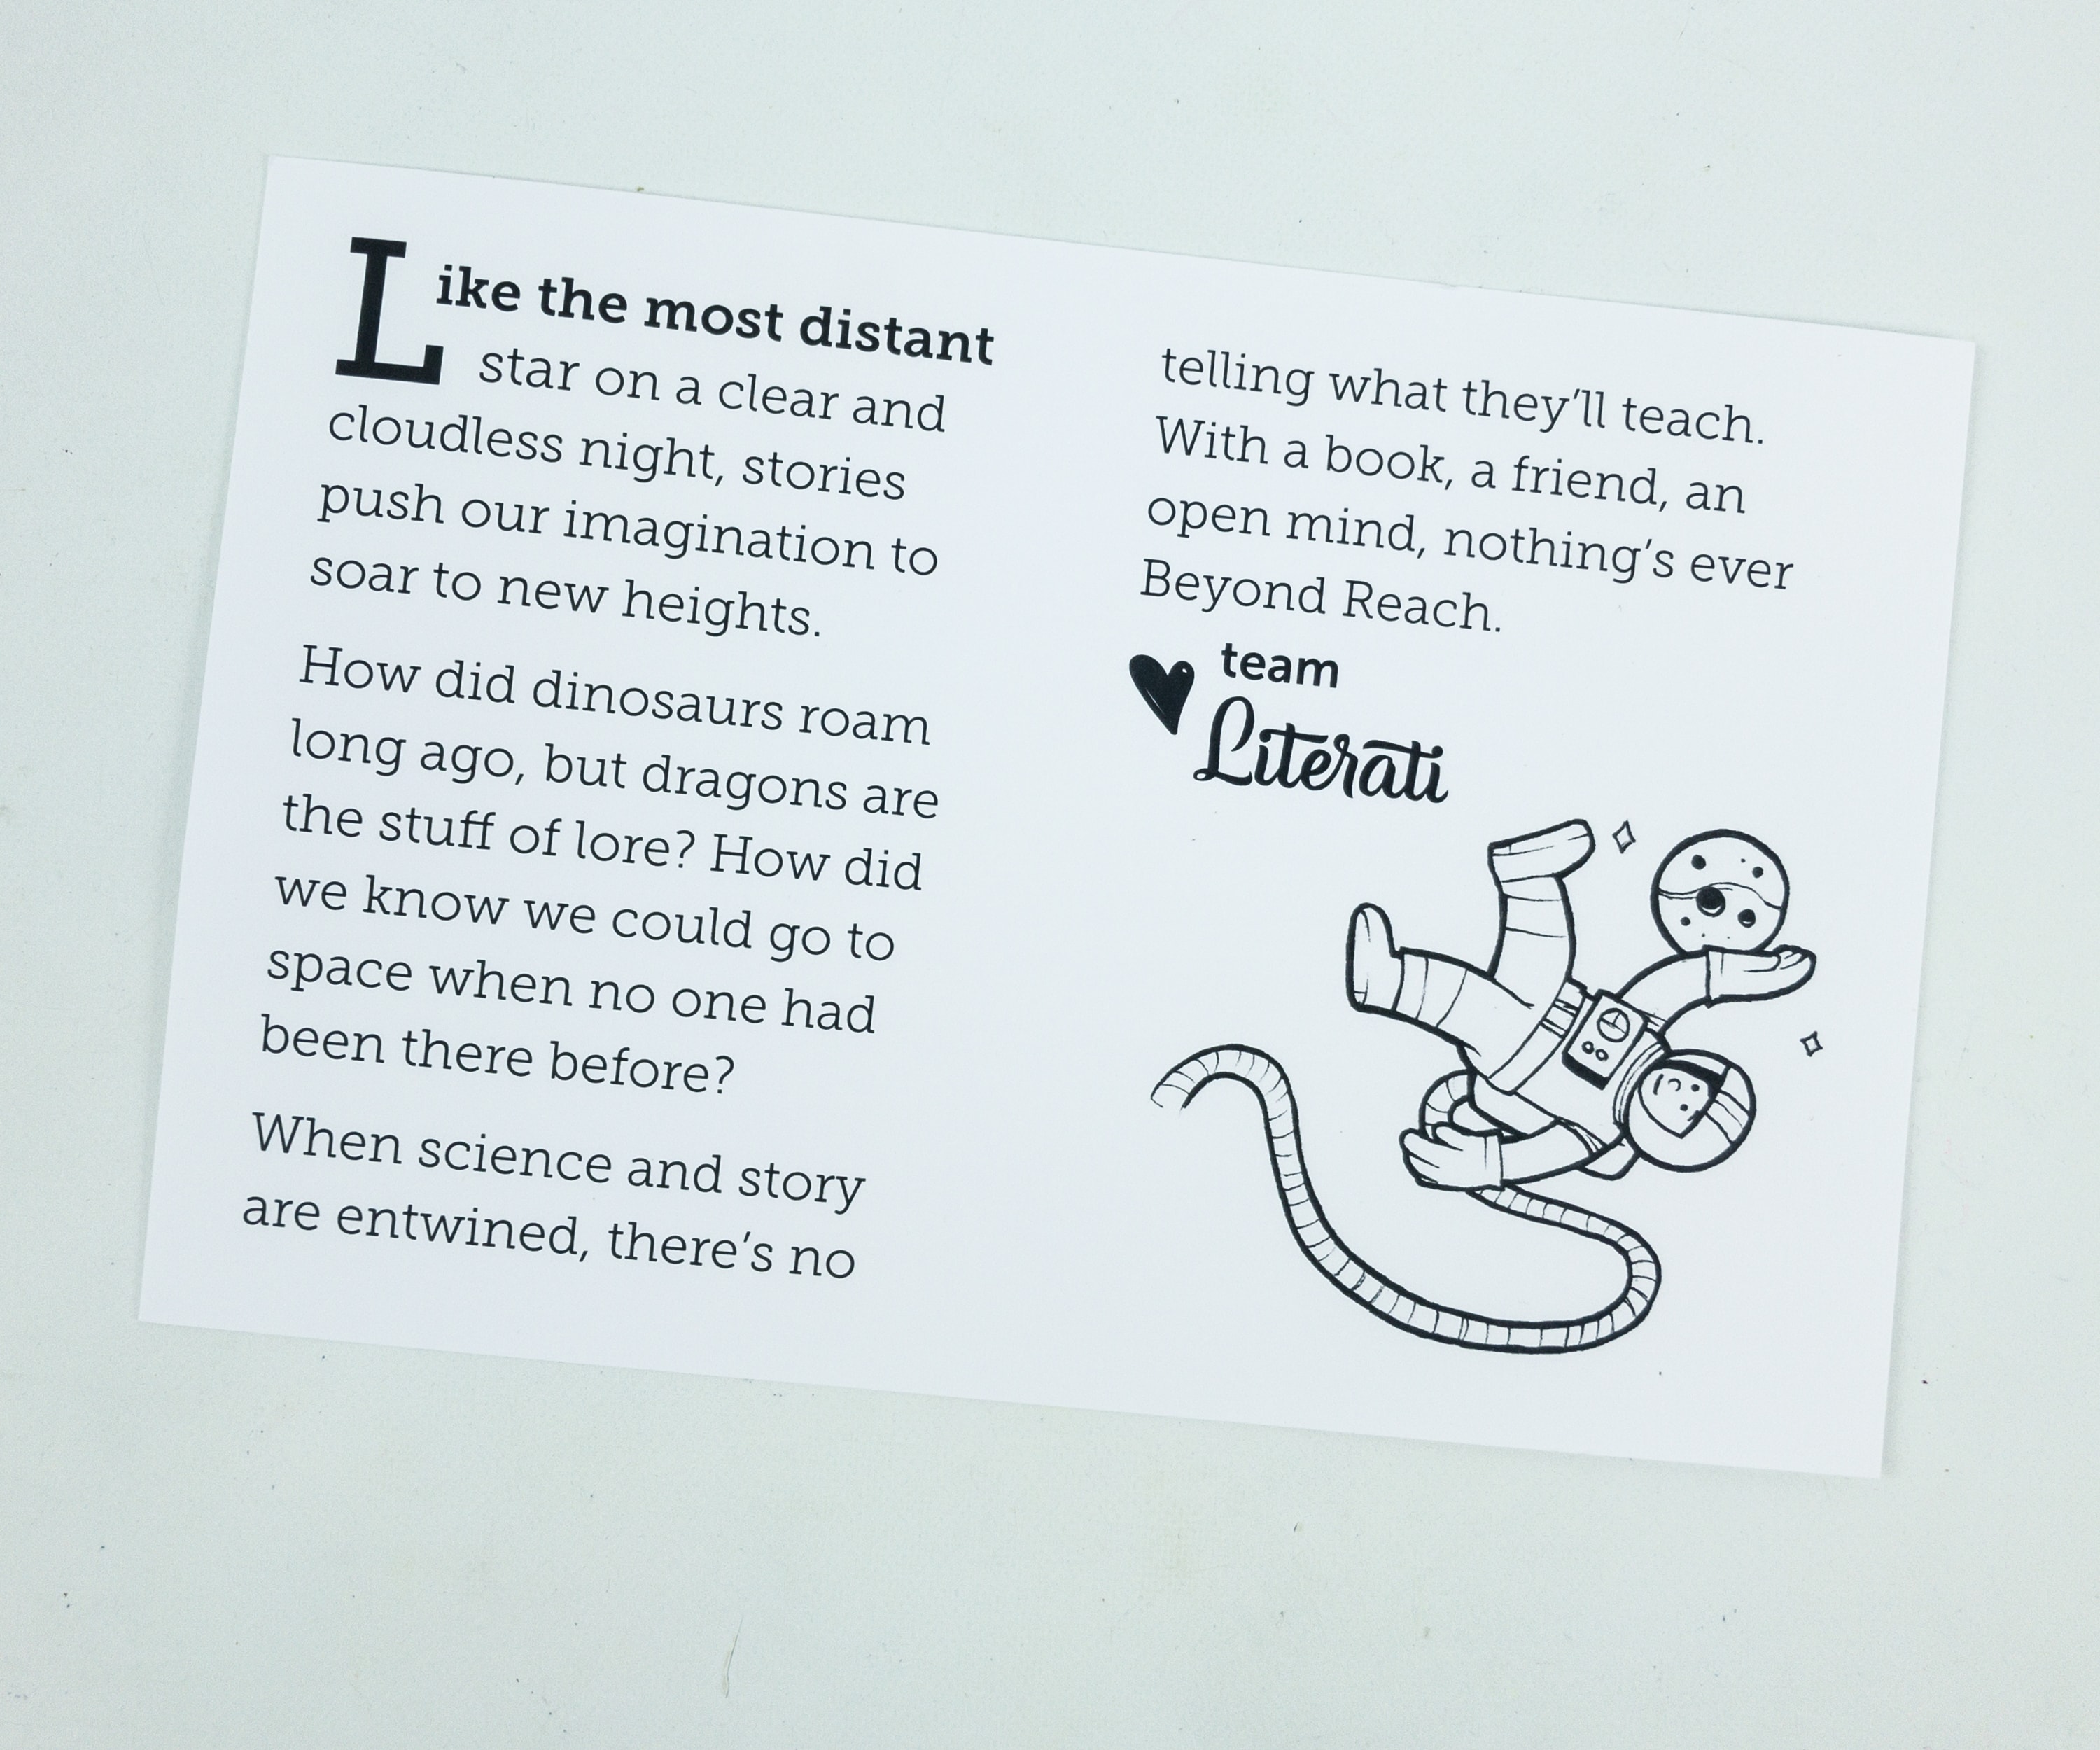 Like the most distant
star on a clear and
cloudless night, stories
push our imagination to
soar to new heights.
How did dinosaurs roam
long ago, but dragons are
the stuff of lore? How did
we know we could go to
space when no one had
been there before?
When science and story
are entwined, there's no
telling what they'll teach.
With a book, a friend, an
open mind, nothing's ever
Beyond Reach.
team
Literati